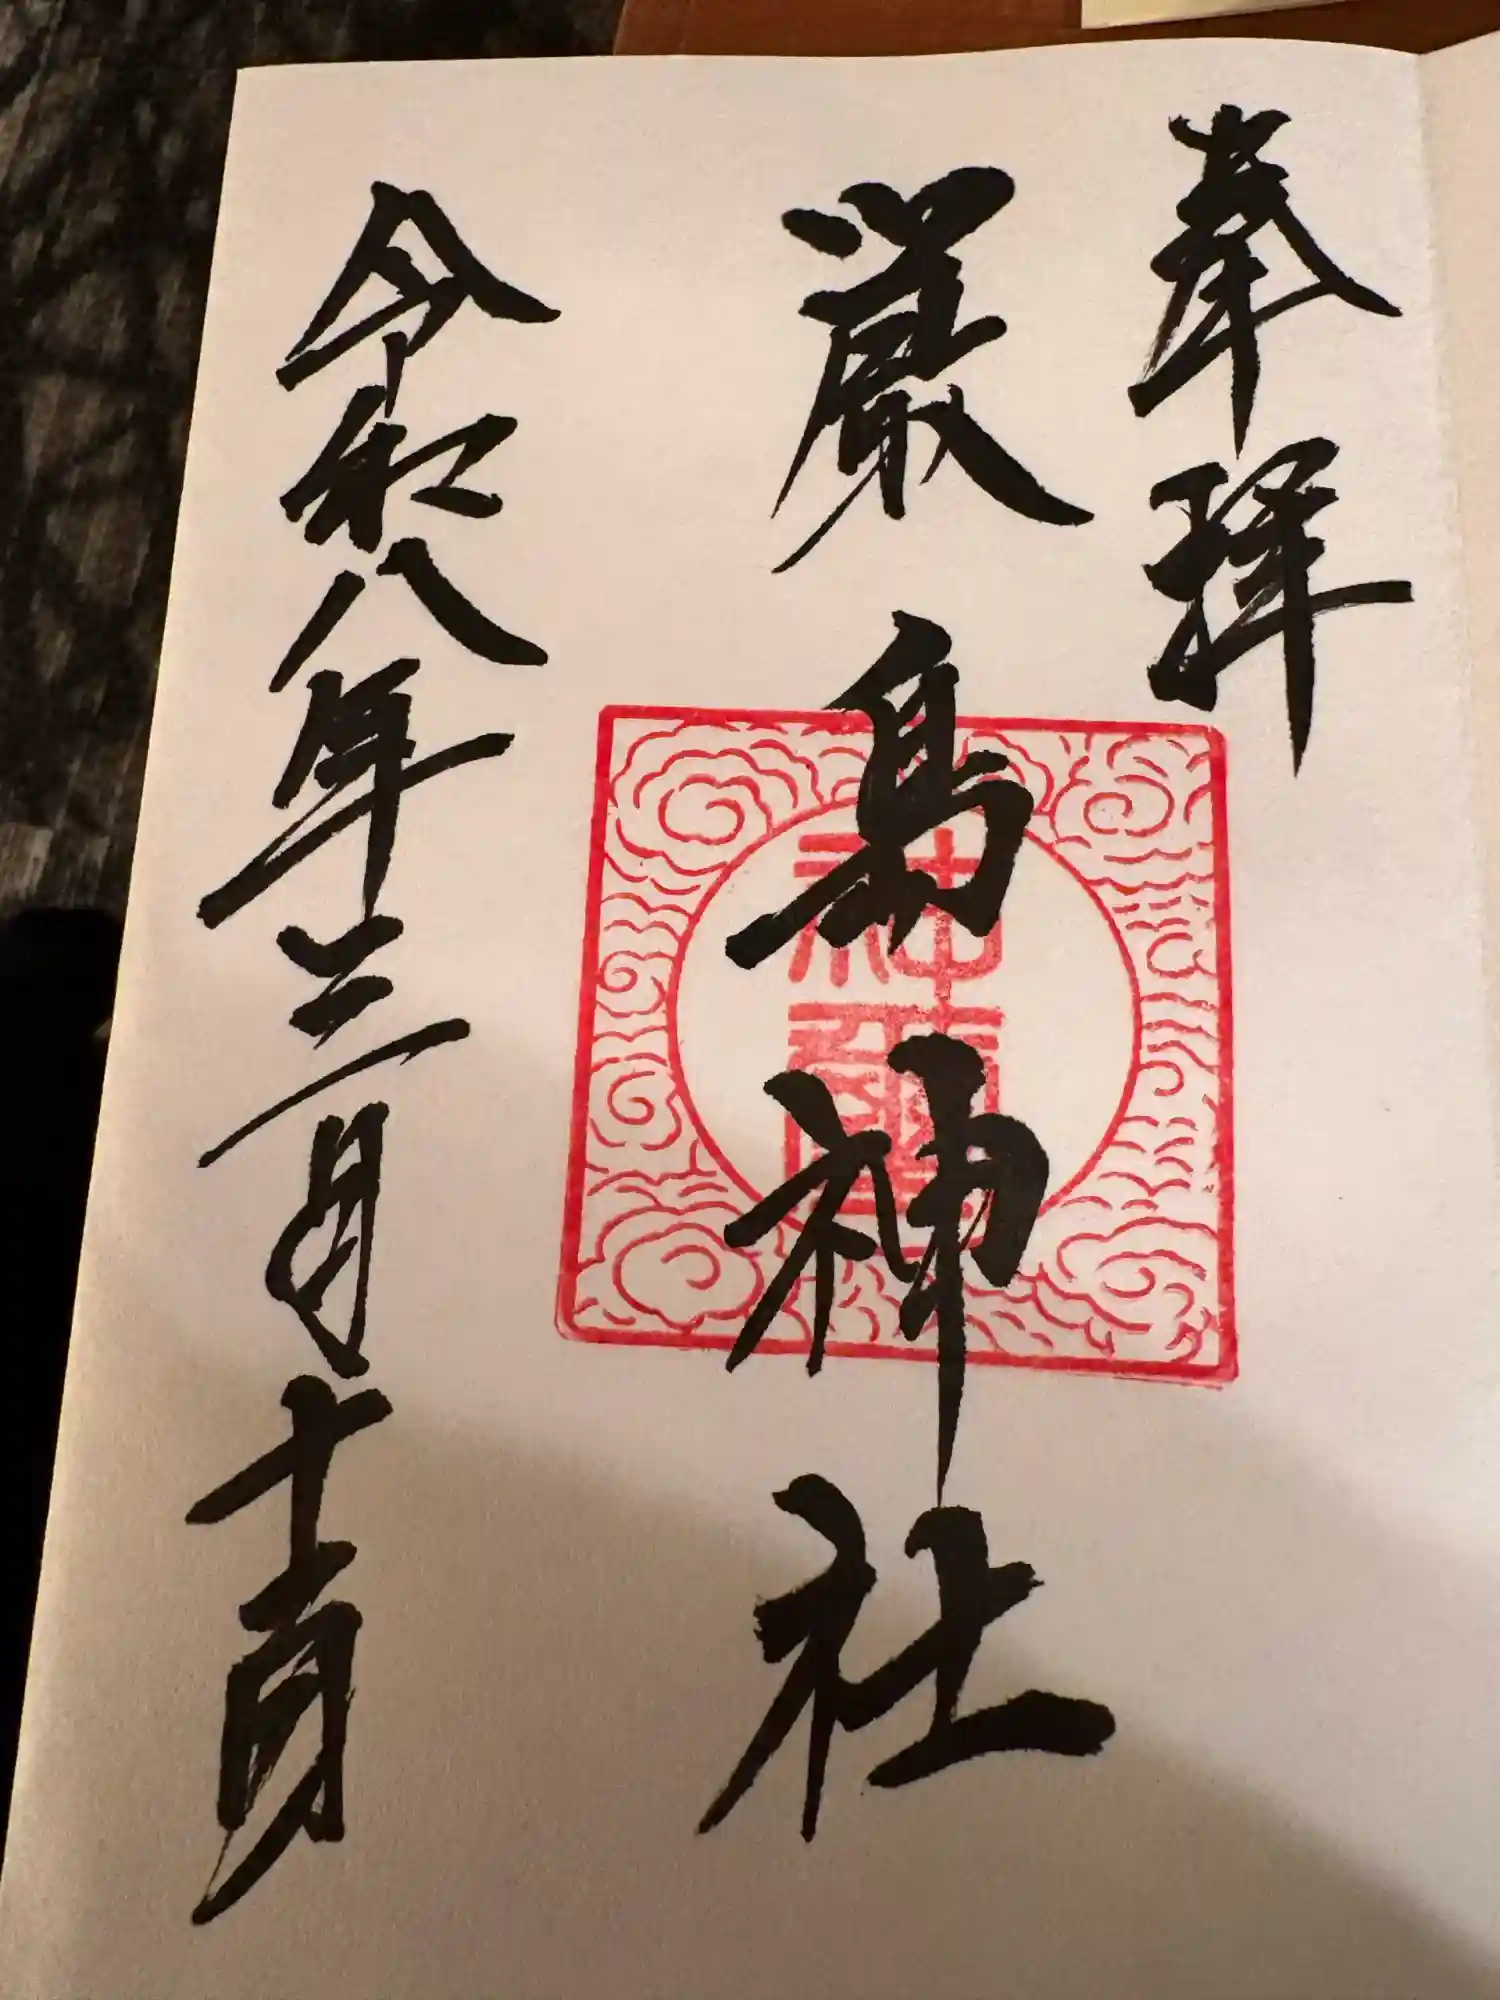 奉拝
厳島神社
神璽
令和八年三月十日